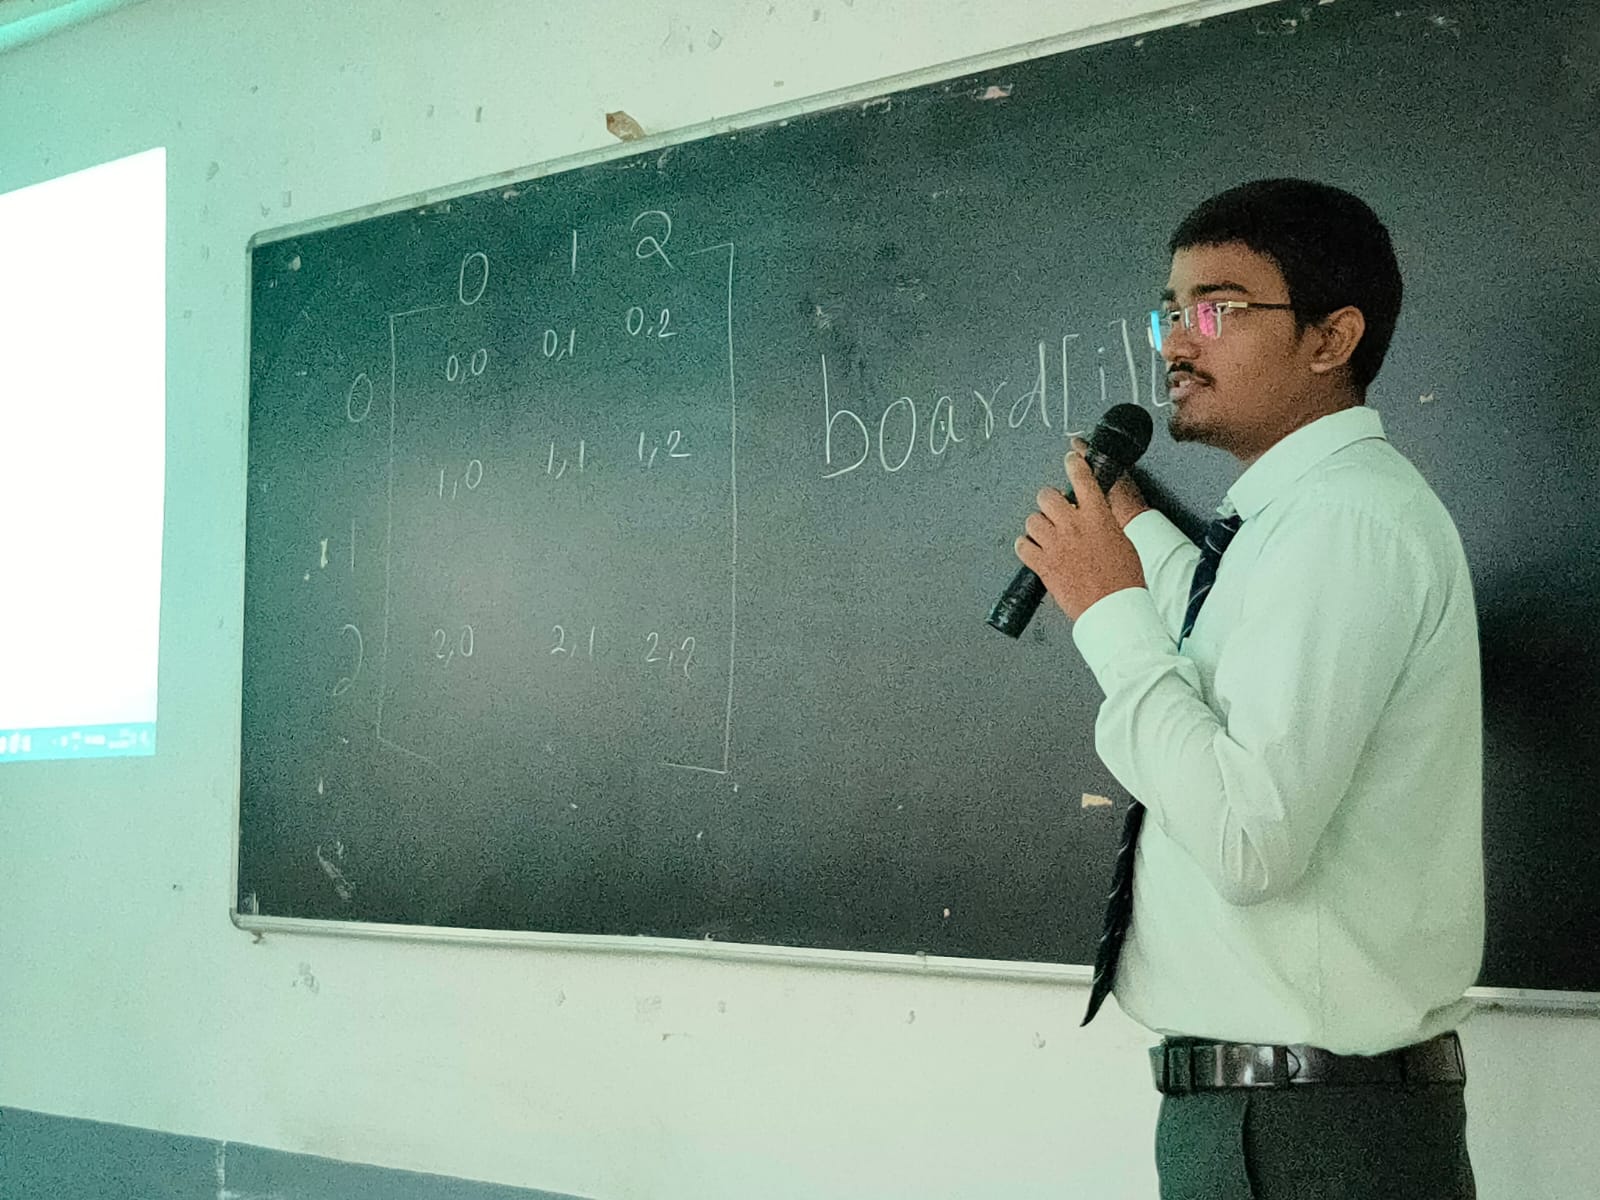 0 1 2
0 0,0 0,1 0,2
1 1,0 1,1 1,2
2 2,0 2,1 2,2
board[i][